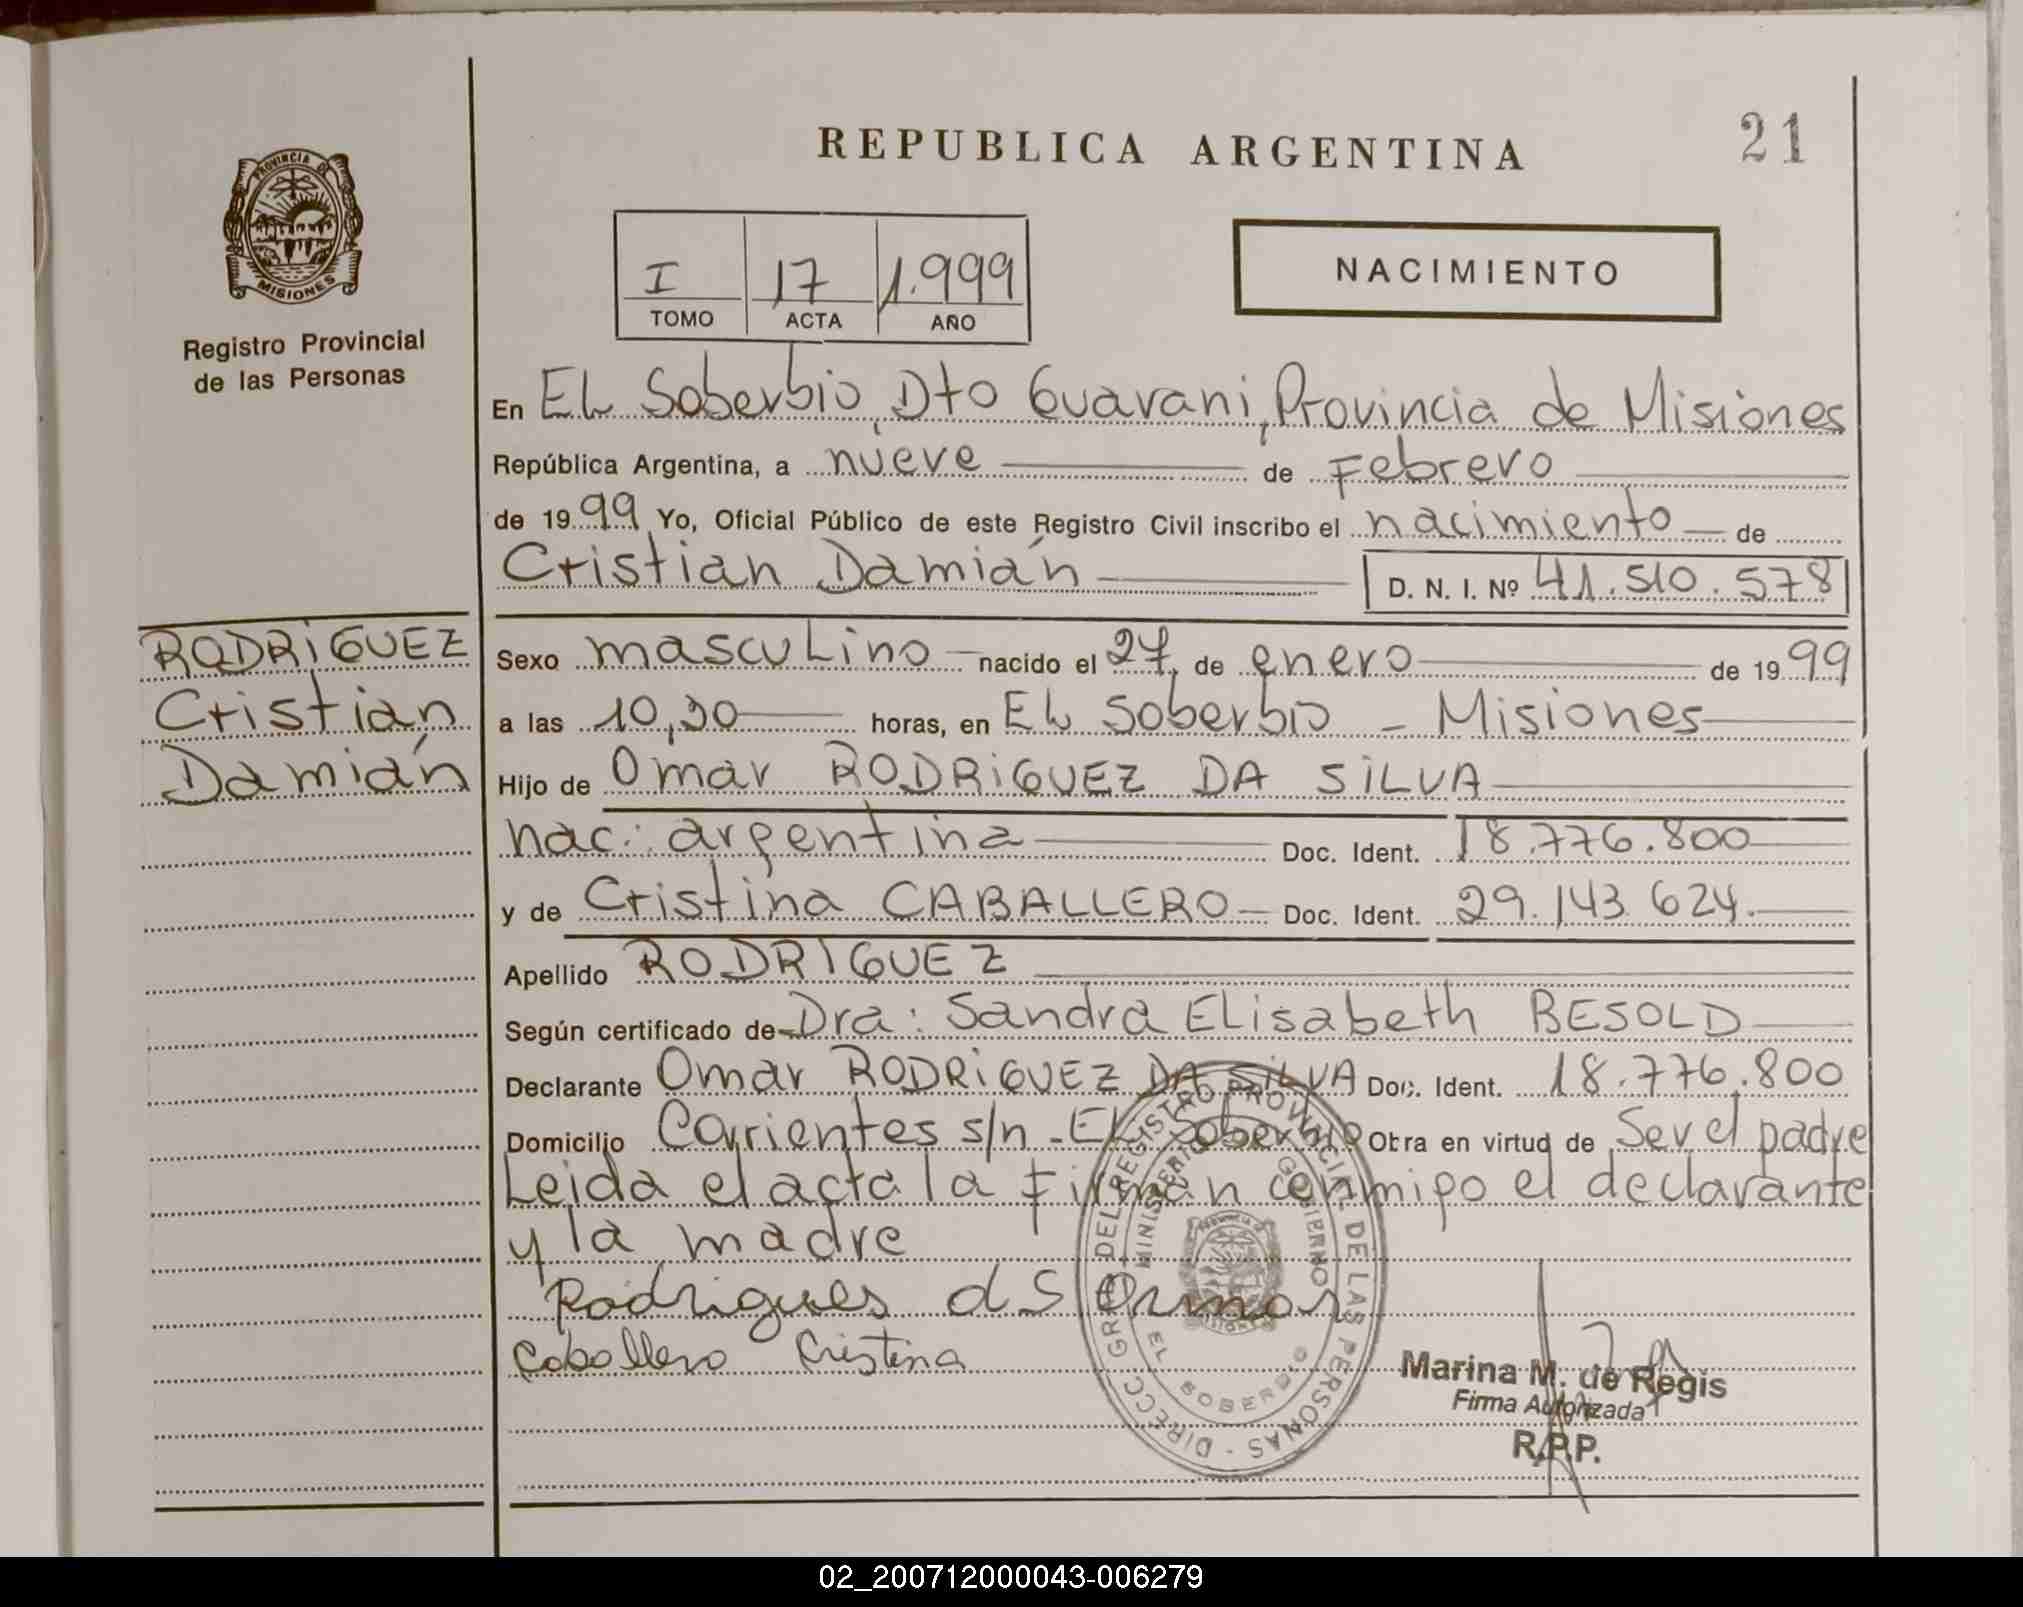 REPUBLICA ARGENTINA
21
PROVINCIA DE
MISIONES
Registro Provincial
de las Personas
I 17 1.999
TOMO ACTA AÑO
NACIMIENTO
En EL Soberbio, Dto Guarani, Provincia de Misiones
República Argentina, a nueve de Febrero
de 1999 Yo, Oficial Público de este Registro Civil inscribo el nacimiento de
Cristian Damián D. N. I. Nº 41.510.578
RODRIGUEZ
Cristian
Damián
Sexo mascuLino nacido el 27 de enero de 1999
a las 10,30 horas, en EL Soberbio - Misiones
Hijo de Omar RODRIGUEZ DA SILVA
nac: argentina Doc. Ident. 18.776.800
y de Cristina CABALLERO Doc. Ident. 29.143.624.
Apellido RODRIGUEZ
Según certificado de Dra: Sandra ELisabeth BESOLD
Declarante Omar RODRIGUEZ DA SILVA Doc. Ident. 18.776.800
Domicilio Corrientes s/n - EL Soberbio Obra en virtud de Ser el padre
Leida el acta la Firman conmigo el declarante
y la madre
Rodrigues d S Omar
Caballero Cristina
DIRECC. GRAL. DEL REGISTRO PROVINCIAL DE LAS PERSONAS -
MINISTERIO GOBIERNO
EL SOBERBIO
Marina M. de Regis
Firma Autorizada
R.P.P.
02_200712000043-006279